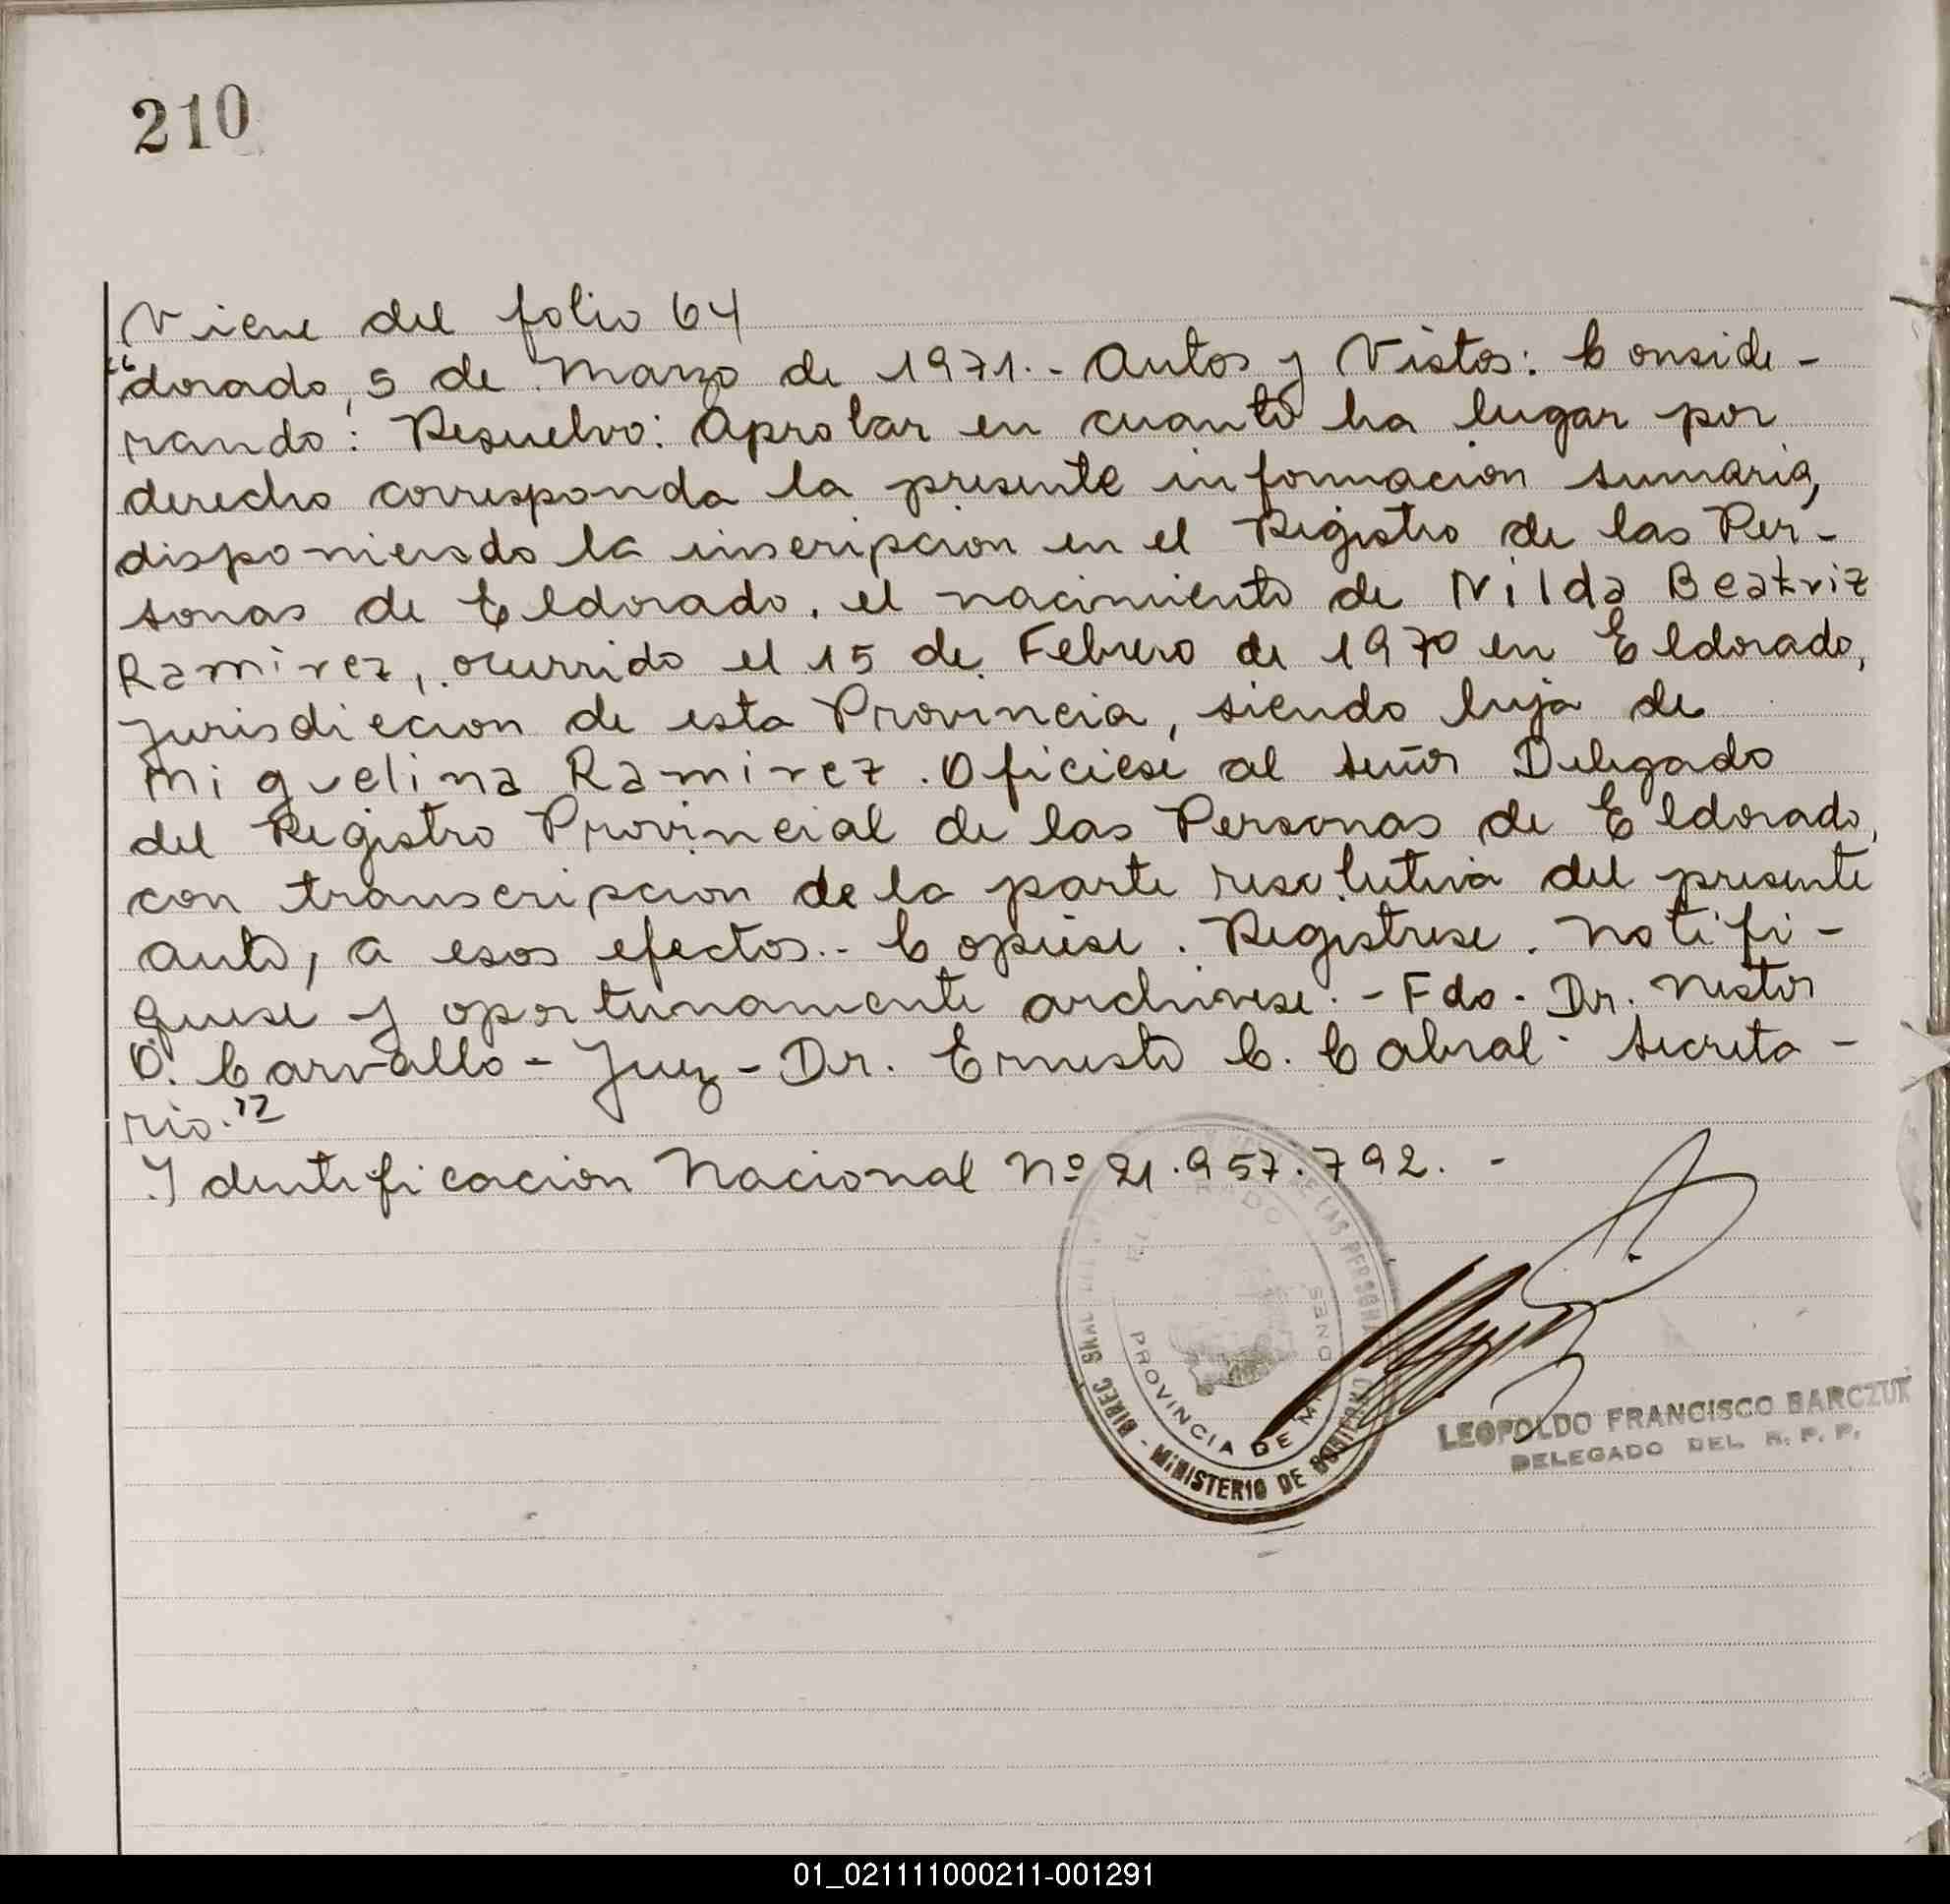 210
Viene del folio 64
"dorado, 5 de Marzo de 1971.- Autos y Vistos: Conside-
rando: Resuelvo: Aprobar en cuanto ha lugar por
derecho corresponda la presente informacion sumaria,
disponiendo la inscripcion en el Registro de las Per-
sonas de Eldorado, el nacimiento de Nilda Beatriz
Ramirez, ocurrido el 15 de Febrero de 1970 en Eldorado,
jurisdiccion de esta Provincia, siendo hija de
Miguelina Ramirez. Oficiese al señor Delegado
del Registro Provincial de las Personas de Eldorado,
con transcripcion de la parte resolutiva del presente
auto, a esos efectos.- Copiese. Registrese. Notifi-
quese y oportunamente archivese.- Fdo. Dr. Nestor
O. Carvallo - Juez - Dr. Ernesto C. Cabral - Secreta-
rio."
Identificacion Nacional Nº 21.957.792. -
DE LAS PERSONAS
PROVINCIA DE
MINISTERIO DE GOBIERNO
LEOPOLDO FRANCISCO BARCZUK
DELEGADO DEL R. P. P.
01_021111000211-001291